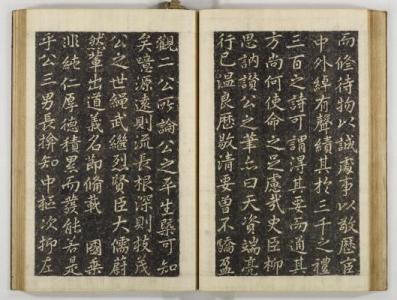 而脩待物以誠處事以敬歷宦
中外綽有聲績其於三千之禮
三百之詩可謂得其要而適其
方尚何使命之足慮哉史臣柳
思訥讃公之筆亦曰天資端亮
行已温良歷敭清要曽不驕盈
觀二公所論公之平生槩可知
矣噫源遠則流長根深則枝茂
公之世繩武繼烈賢臣大儒蔚
然輩出道義名節俻載 國乗
非純仁厚德積累而發能若是
乎公三男長揜知中樞次抑左